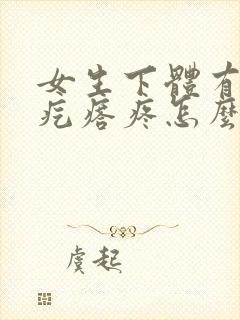 女生下體有
疙瘩疼怎麼
虞起